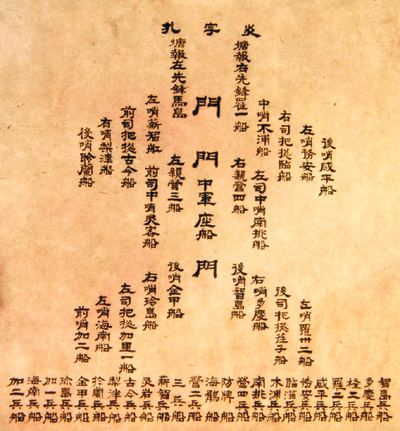 炎字扎
後哨咸平船
左哨務安船
右司把摠臨船
中哨木浦船
塘報右先鋒羅一船
左司中哨南桃船
右親營四船
門
門
中軍座船
門
塘報左先鋒馬島
左親營三船
左哨薪智船
前司中哨灵岩船
前司把摠古今船
右哨梨津船
後哨於蘭船
左哨羅州二船
後司把摠荏子船
右哨多慶船
後哨智島船
後哨金甲船
右哨珍島船
左司把摠加里一船
左哨海南船
前哨加二船
智島兵船
多慶兵船
兵船
羅二兵船
咸平兵船
務安兵船
臨淄兵船
木浦兵船
南桃兵船
營四兵船
防牌船
海鶻船
營二兵船
三兵船
薪智兵船
灵岩兵船
古今兵船
梨津兵船
於蘭兵船
金甲兵船
珍島兵船
加一兵船
海南兵船
加二兵船